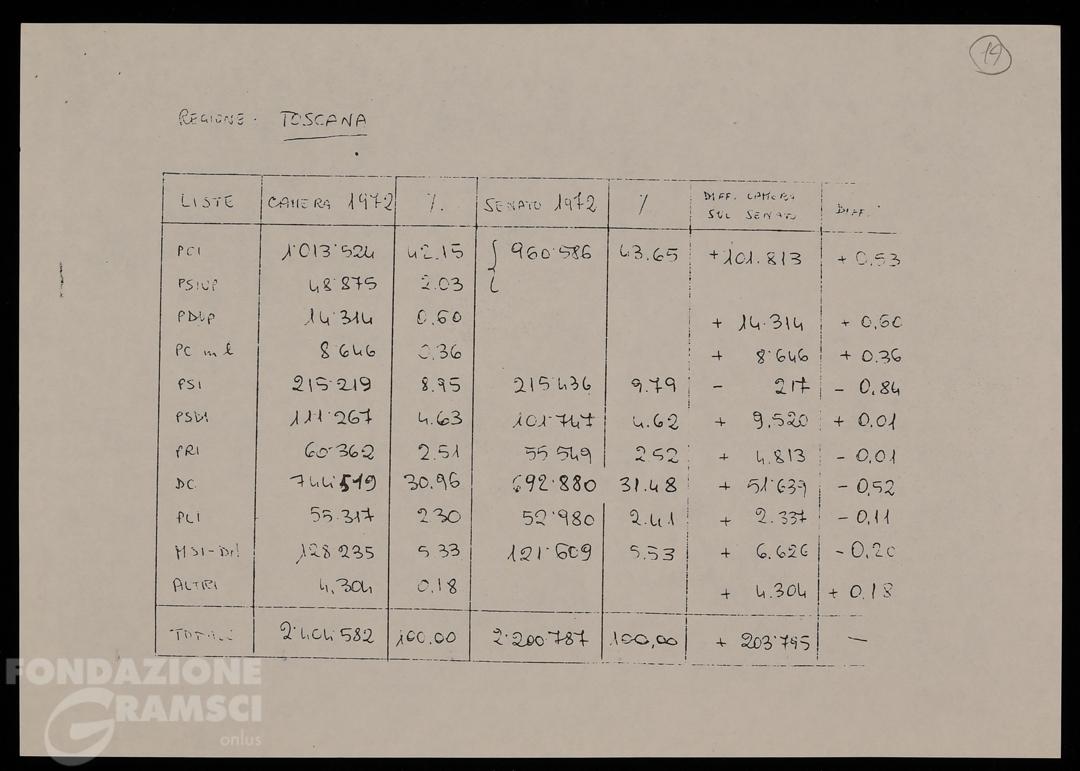 14
REGIONE - TOSCANA
LISTE CAMERA 1972 % SENATO 1972 % DIFF. CAMERA SUL SENATO DIFF.
PCI 1'013'524 42.15 { 960'586 43.65 +101.813 + 0.53
PSIUP 48'875 2.03
PDUP 14'314 0.60 + 14.314 + 0,60
PC m l 8'646 0.36 + 8'646 + 0.36
PSI 215'219 8.95 215'436 9.79 - 217 - 0,84
PSDI 111'267 4.63 101'747 4.62 + 9,520 + 0.01
PRI 60'362 2.51 55'549 2.52 + 4.813 - 0,01
DC 744'519 30.96 692'880 31.48 + 51'639 - 0,52
PLI 55.317 2.30 52'980 2.41 + 2.337 - 0,11
MSI-DN 128'235 5.33 121'609 5.53 + 6.626 - 0,20
ALTRI 4,304 0.18 + 4.304 + 0,18
TOTALE 2'404'582 100.00 2'200'787 100,00 + 203'795 —
FONDAZIONE
GRAMSCI
onlus